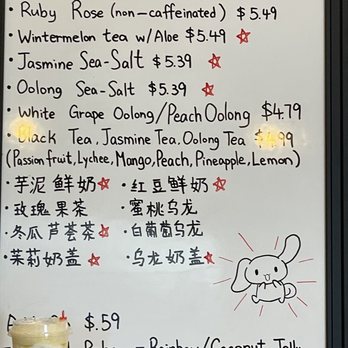 • Ruby Rose (non-caffeinated) $5.49
• Wintermelon tea w/Aloe $5.49 ☆
• Jasmine Sea-Salt $5.39 ☆
• Oolong Sea-Salt $5.39 ☆
• White Grape Oolong/Peach Oolong $4.79
• Black Tea, Jasmine Tea, Oolong Tea $4.99
(Passion fruit, Lychee, Mango, Peach, Pineapple, Lemon)
• 芋泥鲜奶☆ • 红豆鲜奶☆
• 玫瑰果茶 • 蜜桃乌龙
• 冬瓜芦荟茶☆ • 白葡萄乌龙
• 茉莉奶盖☆ • 乌龙奶盖☆
$.59
Rainbow/Coconut Jelly